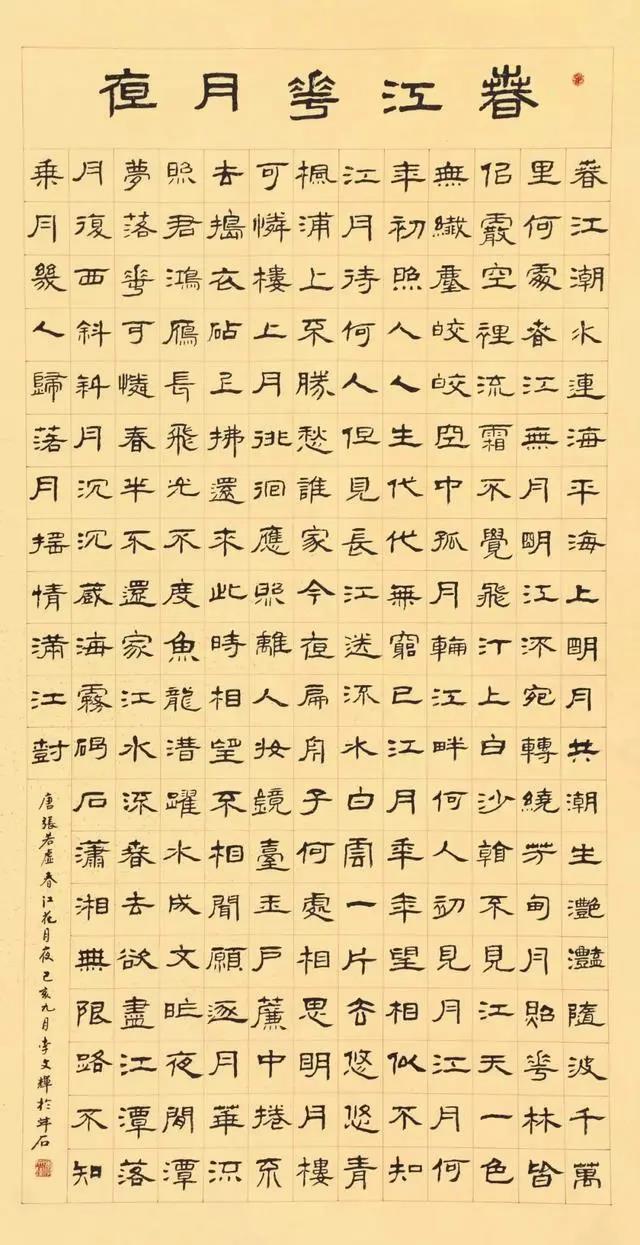 春江花月夜
春江潮水連海平海上明月共潮生灧灩隨波千萬
里何處春江無月明江流宛轉繞芳甸月照花林皆
似霰空裡流霜不覺飛汀上白沙看不見江天一色
無纖塵皎皎空中孤月輪江畔何人初見月江月何
年初照人人生代代無窮已江月年年望相似不知
江月待何人但見長江送流水白雲一片去悠悠青
楓浦上不勝愁誰家今夜扁舟子何處相思明月樓
可憐樓上月徘徊應照離人妝鏡臺玉戶簾中捲不
去搗衣砧上拂還來此時相望不相聞願逐月華流
照君鴻雁長飛光不度魚龍潛躍水成文昨夜閒潭
夢落花可憐春半不還家江水流春去欲盡江潭落
月復西斜斜月沉沉藏海霧碣石瀟湘無限路不知
乘月幾人歸落月搖情滿江樹
唐張若虛春江花月夜己亥九月李文輝於石